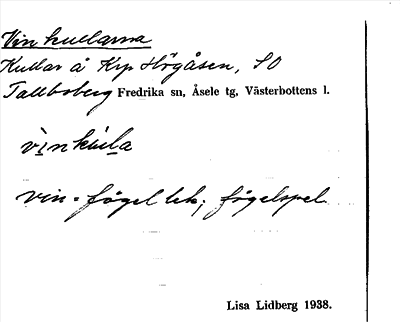 Vinkullarna
Kullar å Krp Högåsen, SO
Tallboberg Fredrika sn, Åsele tg, Västerbottens l.
vin = fågellek; fågelspel
Lisa Lidberg 1938.